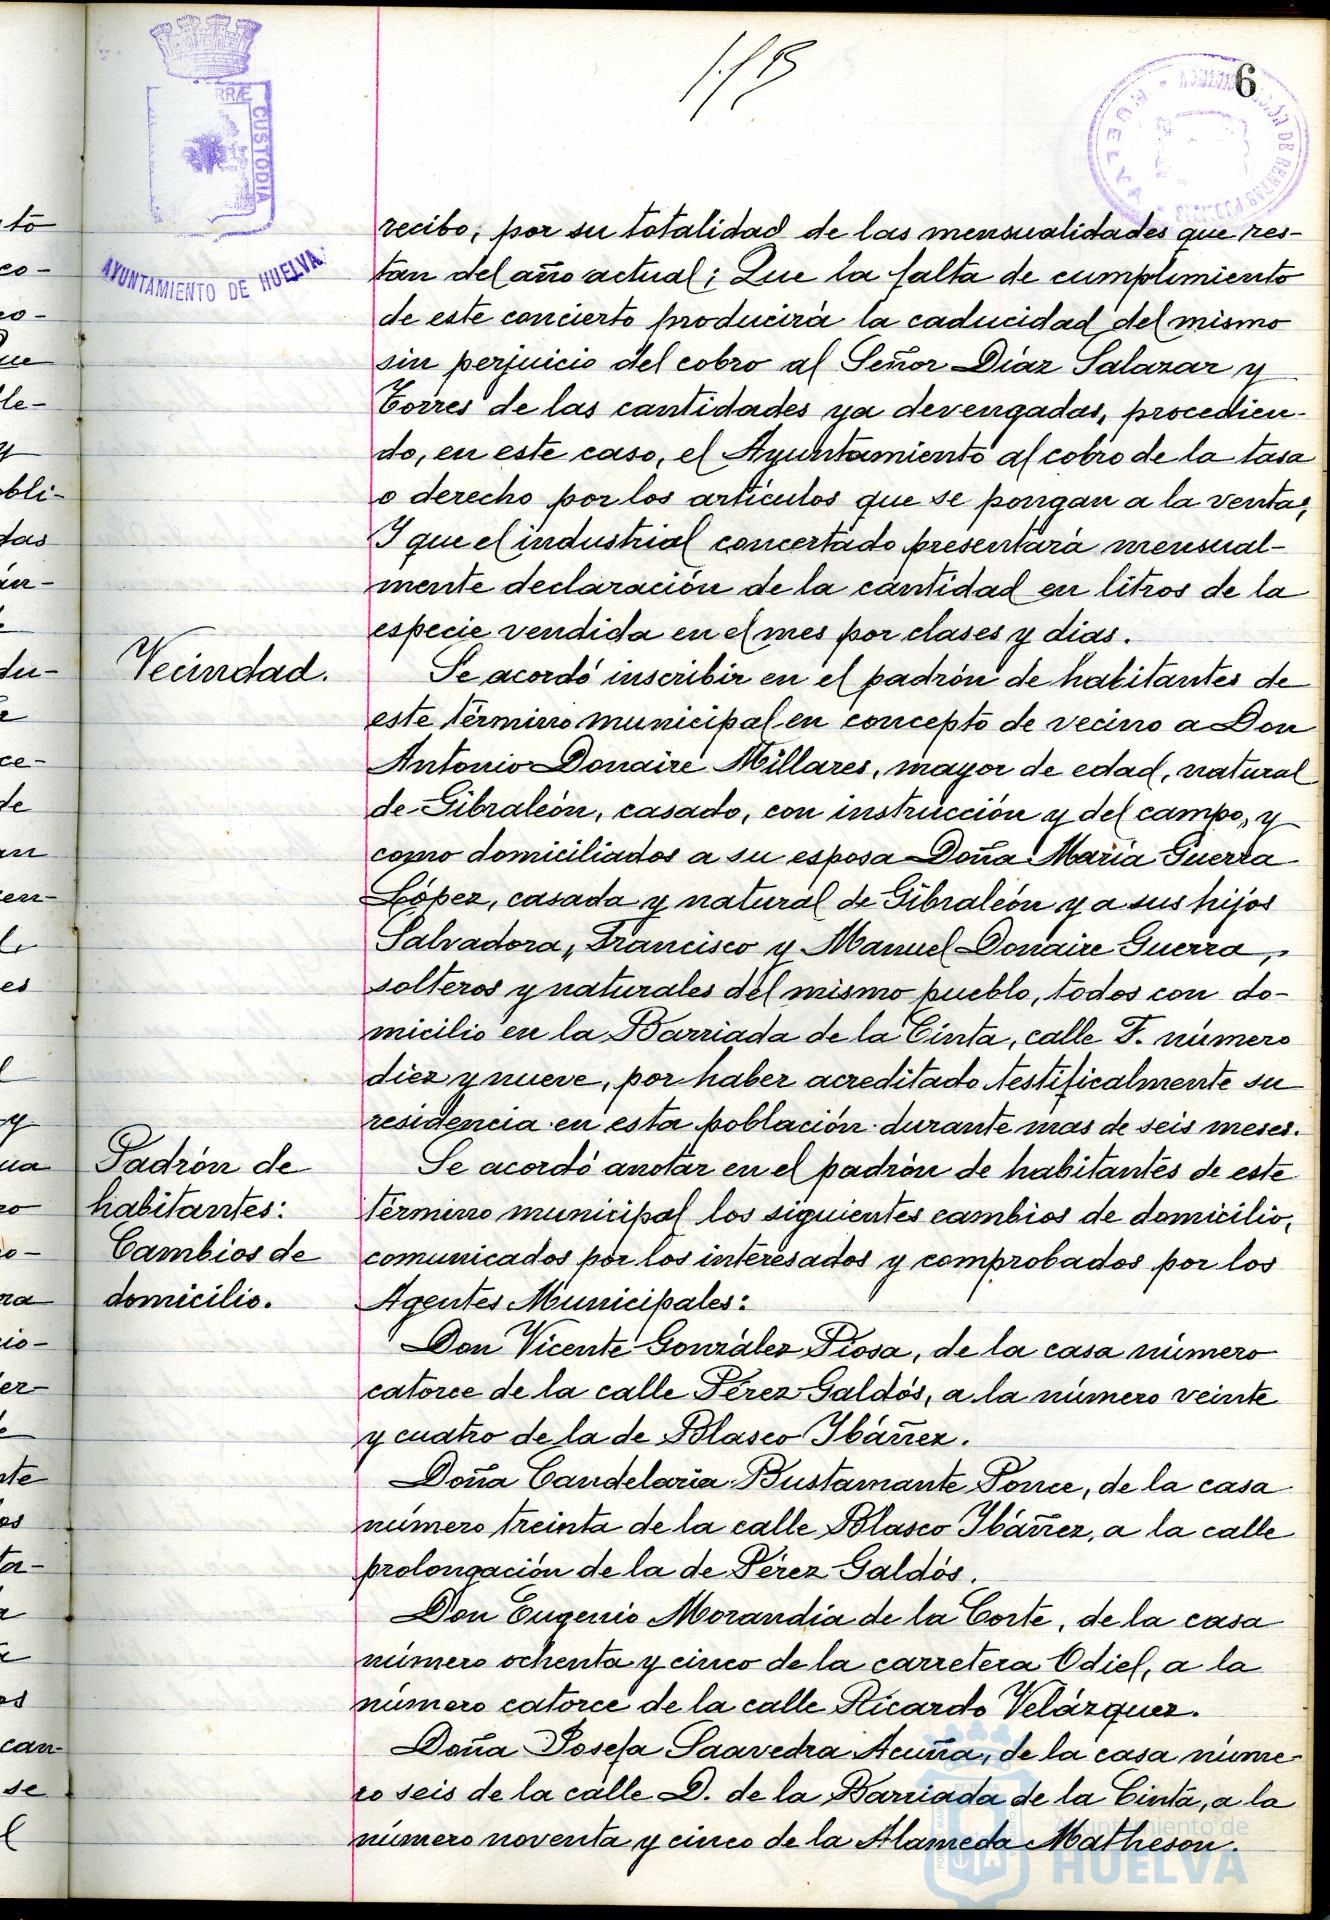 6
RRÆ
CUSTODIA
AYUNTAMIENTO DE HUELVA
HUELVA
recibo, por su totalidad de las mensualidades que res-
tan del año actual; Que la falta de cumplimiento
de este concierto producirá la caducidad del mismo
sin perjuicio del cobro al Señor Díaz Salazar y
Torres de las cantidades ya devengadas, procedien-
do, en este caso, el Ayuntamiento al cobro de la tasa
o derecho por los artículos que se pongan a la venta;
Y que el industrial concertado presentará mensual-
mente declaración de la cantidad en litros de la
especie vendida en el mes por clases y dias.
Vecindad.
Se acordó inscribir en el padrón de habitantes de
este término municipal en concepto de vecino a Don
Antonio Donaire Millares, mayor de edad, natural
de Gibraleón, casado, con instrucción y del campo, y
como domiciliados a su esposa Doña María Guerra
López, casada y natural de Gibraleón y a sus hijos
Salvadora, Francisco y Manuel Donaire Guerra,
solteros y naturales del mismo pueblo, todos con do-
micilio en la Barriada de la Cinta, calle F. número
diez y nueve, por haber acreditado testificalmente su
residencia en esta población durante mas de seis meses.
Padrón de
habitantes:
Cambios de
domicilio.
Se acordó anotar en el padrón de habitantes de este
término municipal los siguientes cambios de domicilio,
comunicados por los interesados y comprobados por los
Agentes Municipales:
Don Vicente González Piosa, de la casa número
catorce de la calle Pérez Galdós, a la número veinte
y cuatro de la de Blasco Ibáñez.
Doña Candelaria Bustamante Ponce, de la casa
número treinta de la calle Blasco Ibáñez, a la calle
prolongación de la de Pérez Galdós.
Don Eugenio Morandía de la Corte, de la casa
número ochenta y cinco de la carretera Odiel, a la
número catorce de la calle Ricardo Velázquez.
Doña Josefa Saavedra Acuña, de la casa núme-
ro seis de la calle D. de la Barriada de la Cinta, a la
número noventa y cinco de la Alameda Matheson.
Ayuntamiento de
HUELVA